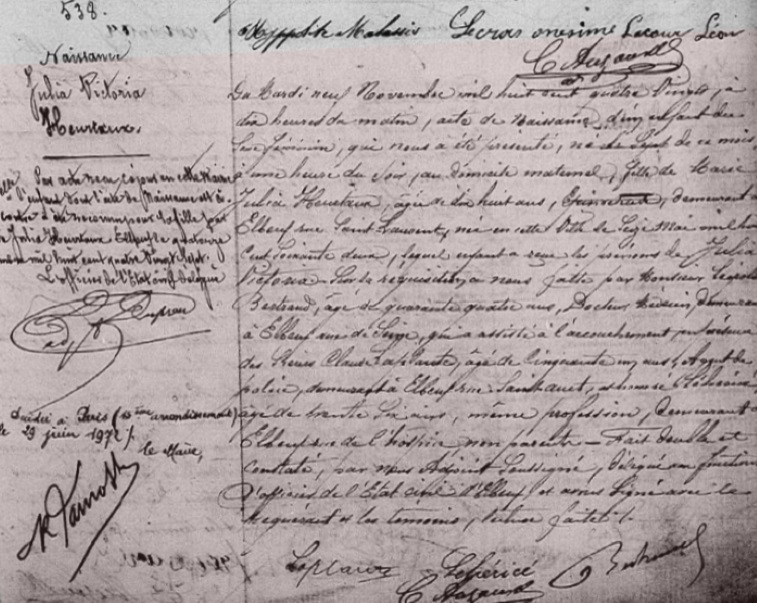 538.
Naissance
Julia Victoria
Heurtaux.
Par acte reçu ce jour en cette Mairie
l'enfant dont l'acte de Naissance est ci-
contre a été reconnu pour sa fille par
Julia Heurtaux. Elbeuf le quatorze
mil huit cent quatre Vingt Sept.
L'officier de l'Etat civil délégué
Décédée à Paris
le 29 juin 1972 /.
le Maire,
Hyppolite Malassis Lecras onésime Lecour Léon
C Auzoux
Du Mardi neuf Novembre mil huit cent quatre Vingts, à
dix heures du matin, acte de Naissance d'un enfant du
Sexe féminin, qui nous a été présenté, né le Sept de ce mois,
à une heure du Soir, au domicile maternel, fille de Marie
Julia Heurtaux, âgée de dix huit ans, demeurant à
Elbeuf rue Saint Laurent, née en cette Ville le Seize Mai mil huit
Cent Soixante deux, lequel enfant a reçu les prénoms de Julia
Victoria Sur la requisition à nous faite par Monsieur
Bertrand, âgé de quarante quatre ans, Docteur Médecin, demeurant
à Elbeuf rue de Seine, qui a assisté à l'accouchement, en présence
des Sieurs Claude Laplante, âgé de Cinquante un ans, Agent de
police, demeurant à Elbeuf rue
âgé de trente Six ans, même profession, demeurant à
Elbeuf rue de l'hospice, non parents — Fait double et
Constaté, par nous Adjoint Soussigné, délégué aux fonctions
d'officier de l'Etat civil d'Elbeuf et avons Signé avec le
Requérant et les temoins, lecture faite /.
Laplante Lehéricé Bertrand
C Auzoux